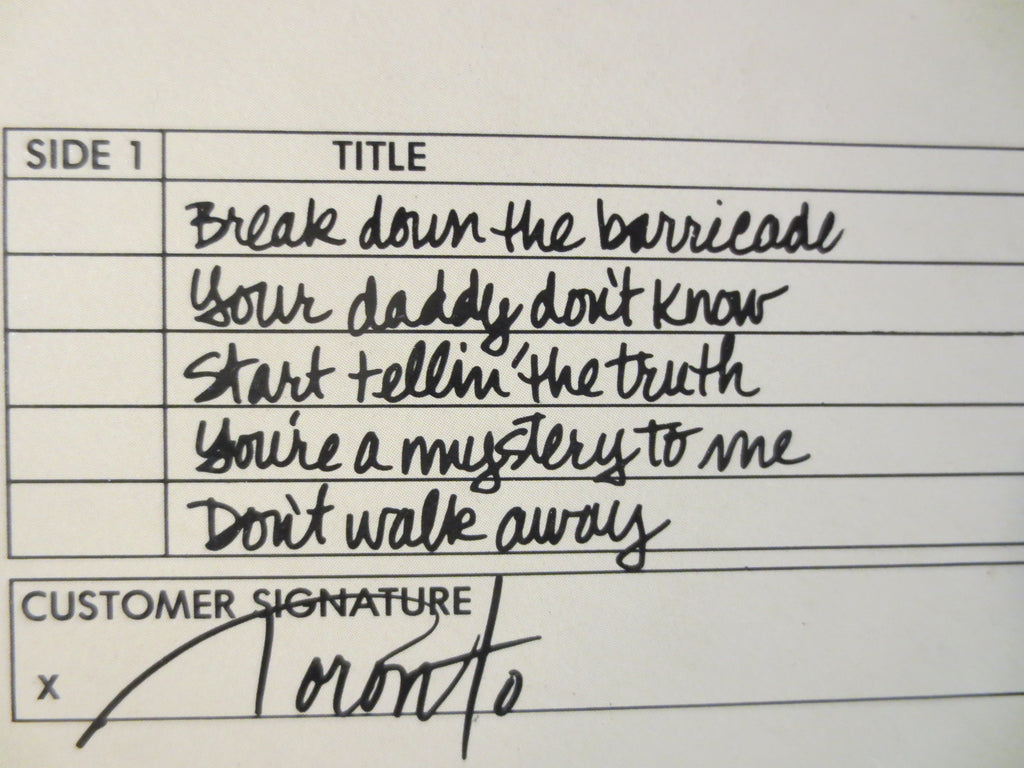 SIDE 1 TITLE
Break down the barricade
Your daddy don't know
Start tellin' the truth
You're a mystery to me
Don't walk away
CUSTOMER SIGNATURE
x Toronto